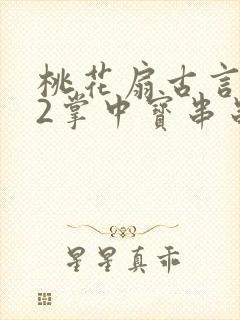 桃花扇古言
2掌中寳串
星星真乖